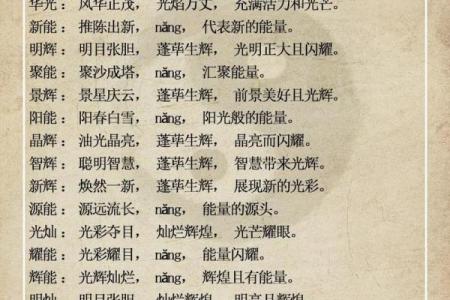 华光： 风华正茂， 光焰万丈， 充满活力和光芒。
新能： 推陈出新， nǎng， 代表新的能量。
明辉： 明目张胆， 蓬荜生辉， 光明正大且闪耀。
聚能： 聚沙成塔， nǎng， 汇聚能量。
景辉： 景星庆云， 蓬荜生辉， 前景美好且光辉。
阳能： 阳春白雪， nǎng， 阳光般的能量。
晶辉： 油光晶亮， 蓬荜生辉， 晶亮而闪耀。
智辉： 聪明智慧， 蓬荜生辉， 智慧带来光辉。
新辉： 焕然一新， 蓬荜生辉， 展现新的光彩。
源能： 源远流长， nǎng， 能量的源头。
光灿： 光彩夺目， 灿烂辉煌， 光芒耀眼。
耀能： 光彩耀目， nǎng， 能量闪耀。
辉能： 光辉灿烂， nǎng， 辉煌且有能量。
明灿： 明目张胆， 灿烂辉煌， 明亮且灿烂。